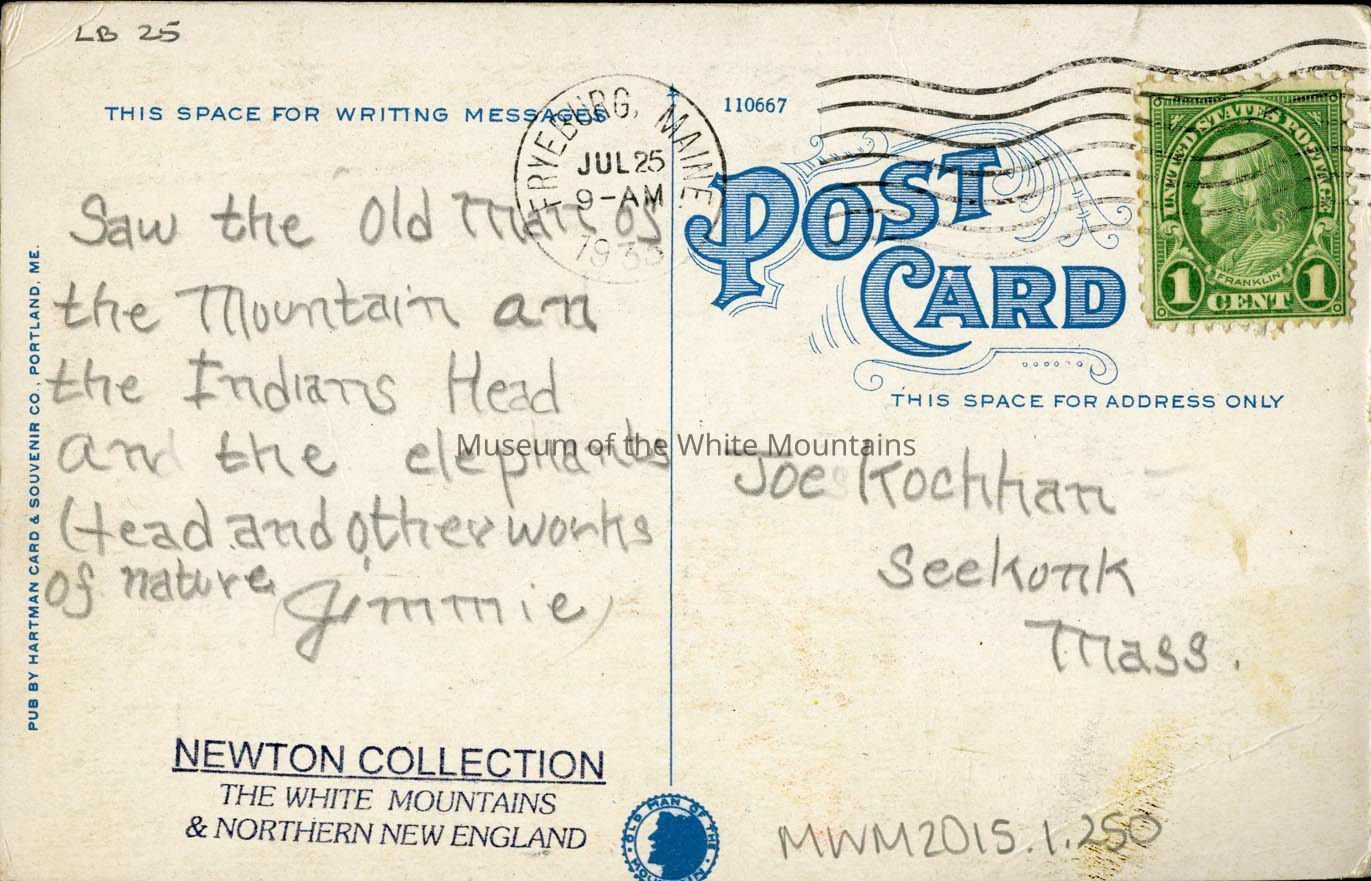 LB 25
THIS SPACE FOR WRITING MESSAGES
FRYEBURG, MAINE
JUL 25
9-AM
1933
110667
UNITED STATES POSTAGE
FRANKLIN
1 CENT 1
POST
CARD
THIS SPACE FOR ADDRESS ONLY
Saw the Old Man of
the Mountain an
the Indians Head
and the elephants
Head and other works
of nature Jimmie
Museum of the White Mountains
Joe Kochhan
Seekonk
Mass.
PUB BY HARTMAN CARD & SOUVENIR CO., PORTLAND, ME.
NEWTON COLLECTION
THE WHITE MOUNTAINS
& NORTHERN NEW ENGLAND
OLD MAN OF THE
MWM2015.1.250